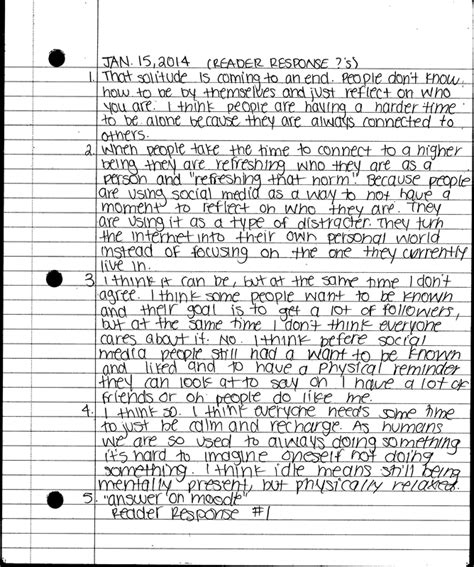 JAN. 15, 2014 (READER RESPONSE ?'s)
1. That solitude is coming to an end. People don't know
how to be by themselves and just reflect on who
you are. I think people are having a harder time
to be alone because they are always connected to
others.
2. When people take the time to connect to a higher
being they are refreshing who they are as a
person and "refreshing that norm". Because people
are using social media as a way to not have a
moment to reflect on who they are. They
are using it as a type of distracter. They turn
the internet into their own personal world
instead of focusing on the one they currently
live in.
3. I think it can be, but at the same time I don't
agree. I think some people want to be known
and their goal is to get a lot of followers,
but at the same time I don't think everyone
cares about it. No. I think before social
media people still had a want to be known
and liked and to have a physical reminder
they can look at to say oh I have a lot of
friends or oh people do like me.
4. I think so. I think everyone needs some time
to just be calm and recharge. As humans
we are so used to always doing something
it's hard to imagine oneself not doing
something. I think idle means still being
mentally present, but physically relaxed.
5. "answer on moodle"
Reader Response #1